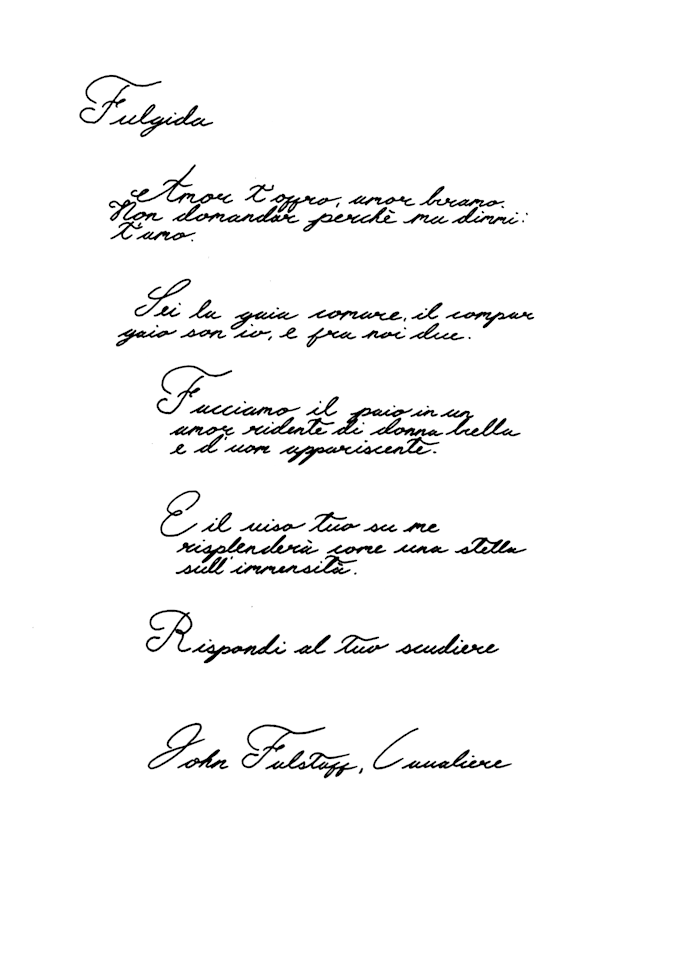 Fulgida
Amor t'offro, amor bramo.
Non domandar perchè ma dimmi:
t'amo.
Sei la gaia comare, il compar
gaio son io, e fra noi due.
Facciamo il paio in un
amor ridente di donna bella
e d'uom appariscente.
E il viso tuo su me
risplenderà come una stella
sull'immensità.
Rispondi al tuo scudiere
John Falstaff, Cavaliere